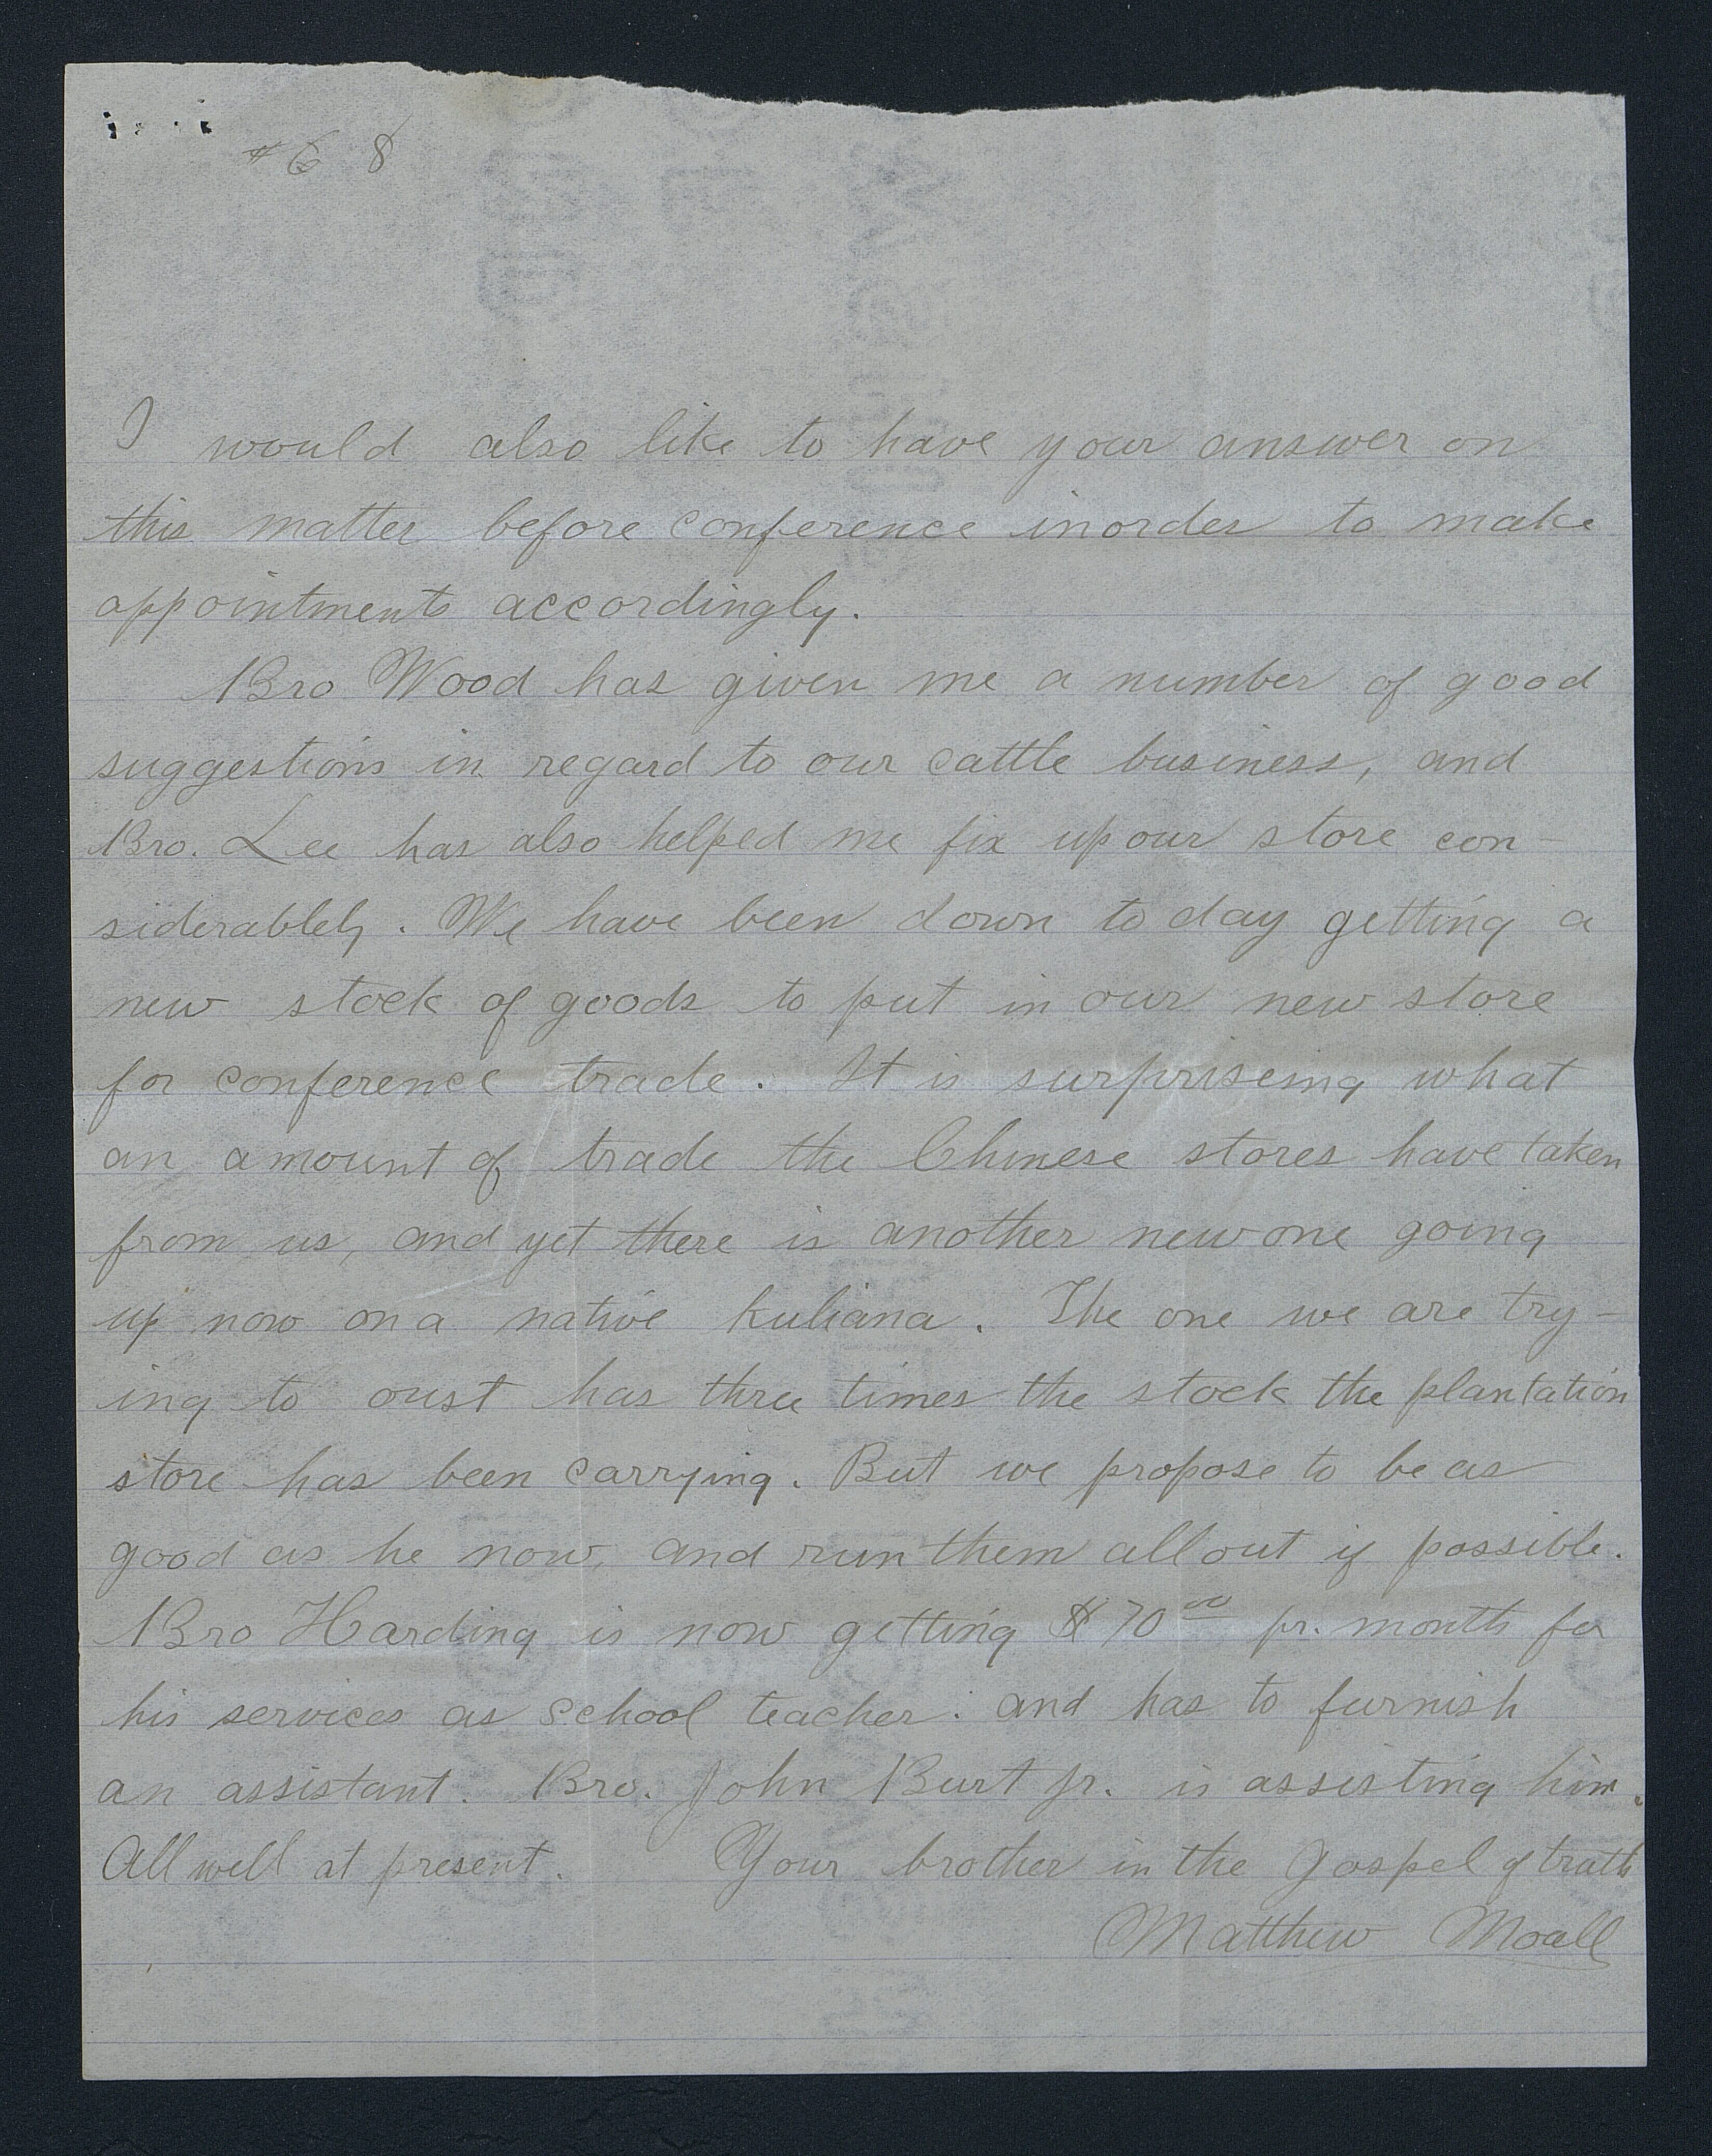 # 6 8
I would also like to have your answer on
this matter before conference inorder to make
appointments accordingly.
Bro Wood has given me a number of good
suggestions in regard to our cattle business, and
Bro. Lee has also helped me fix up our store con-
siderablely. We have been down to day getting a
new stock of goods to put in our new store
for conference trade. It is surpriseing what
an amount of trade the Chinese stores have taken
from us, and yet there is another new one going
up now on a native kuliana. The one we are try-
ing to oust has three times the stock the plantation
store has been carrying. But we propose to be as
good as he now, and run them all out if possible.
Bro Harding is now getting $70 00 pr. month for
his services as school teacher: and has to furnish
an assistant. Bro. John Burt jr. is assisting him.
All well at present. Your brother in the Gospel of truth
Matthew Noall